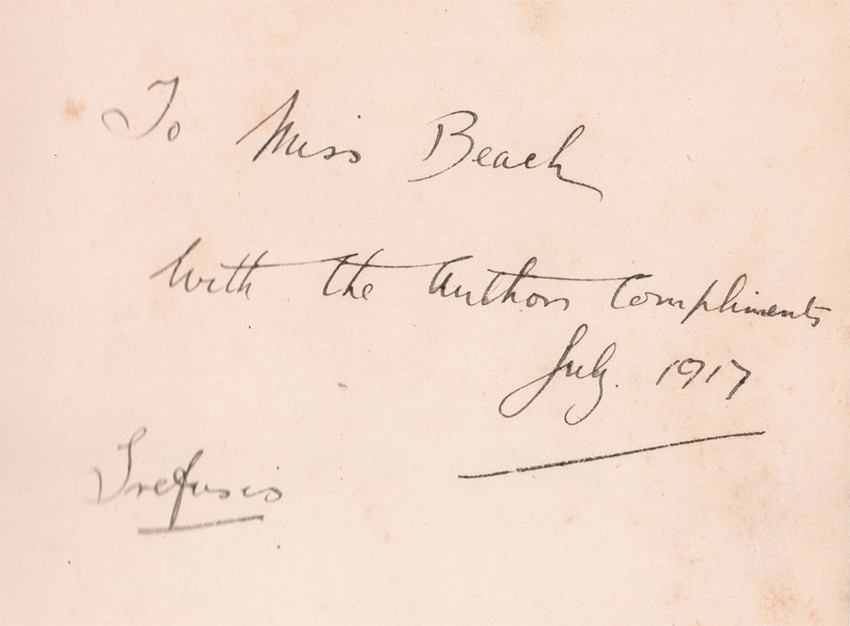 To Miss Beach
With the Authors Compliments
July. 1917
Trefusis